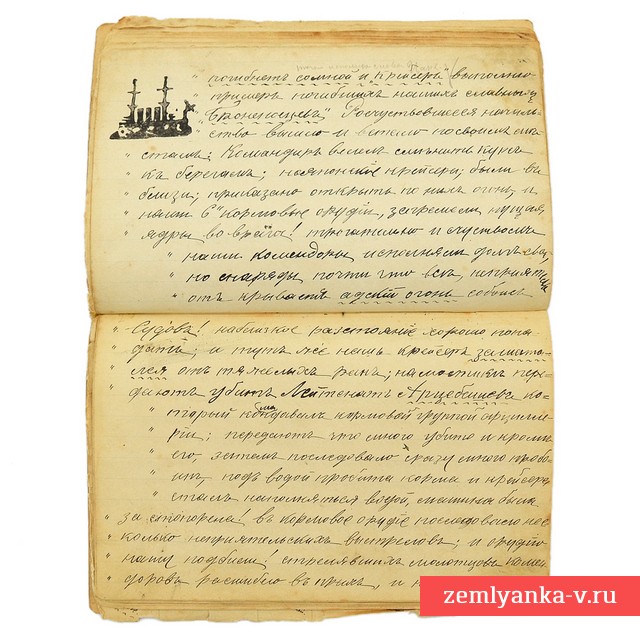 погибнетъ со мной и "крейсеръ" выполню
примеръ погибшихъ нашихъ славныхъ
"Броненосцевъ" Разчуствовшееся началь
ство вышло и встало по своимъ ме
стамъ; Командиръ велелъ сменить курсъ
къ берегамъ; но японские крейсера; были въ
близи; приказано открыть по нимъ огонь, и
наши 6" кормовые орудiя, загремели пуская
ядры во врага! трогательно и съ чуствомъ
наши комендоры исполняли долгъ свой
но снаряды почти что все, неприятель
открываетъ адскiй огонь собоихъ
Судовъ! на близкое разстоянiе хорошо попа
датъ; и тутъ же нашъ крейсеръ зашата
лся отъ тяжелыхъ ранъ; на мостикъ пере
даютъ убитъ Лейтенантъ Арцебашева ко
торый командовалъ кормовой группой артилле
рiи; передаютъ что много убито и кроме
его, затемъ последовало сразу много пробо
инъ, подъ водой пробита корма и крейсеръ
сталъ наполняться водой, машина была
застопорена! въ кормовое орудiе последовало нес
колько неприятельскихъ выстреловъ; и орудiю
нашу подбили! стрелявшихъ молотцовъ комен
доровъ расшибло въ прахъ, и
zemlyanka-v.ru